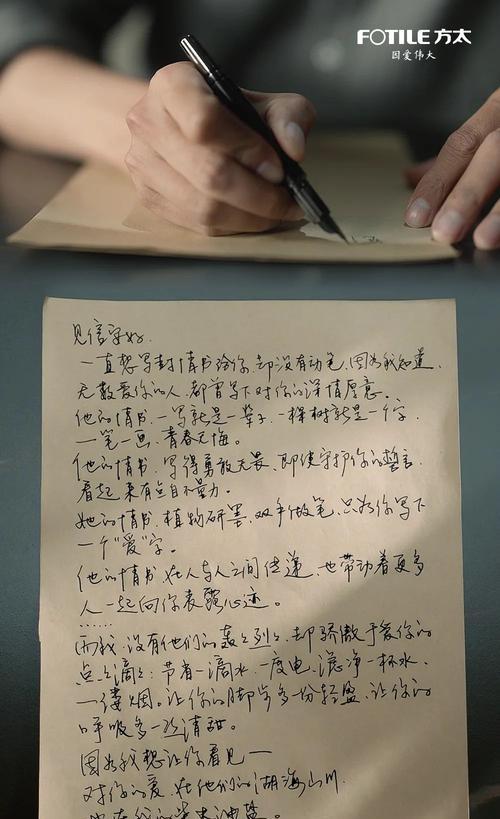 FOTILE 方太
因爱伟大
见信字好.
一直想写封情书给你,却没有动笔,因为我知道,
无数爱你的人,都曾写下对你的深情厚意。
他的情书,一写就是一辈子,一棵树就是一个字,
一笔一画,青春无悔。
他的情书,写得勇敢无畏,即使守护你的誓言,
看起来有点自不量力。
她的情书,植物研墨,双手做笔,只为你写下
一个“爱”字。
他的情书,在人与人之间传递,也带动着更多
人一起向你表露心迹。
……
而我,没有他们的轰轰烈烈,却骄傲于爱你的
点点滴滴:节省一滴水,一度电,滤净一杯水,
一缕烟。让你的脚步多份轻盈,让你的
呼吸多一丝清甜。
因为我想让你看见——
对你的爱,在他们的湖海山川,
也在我的柴米油盐。